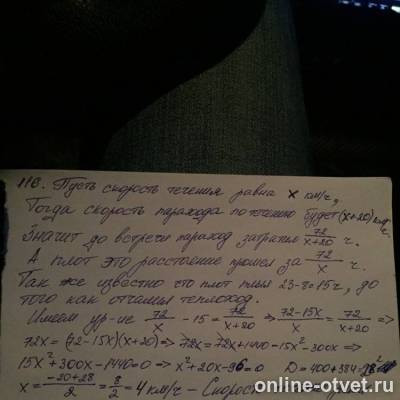 118. Пусть скорость течения равна x км/ч,
Тогда скорость парахода по течению будет (x+20) км/ч.
Значит до встречи параход затратил 72/(x+20) ч.
А плот это расстояние прошел за 72/x ч.
Так же известно что плот плыл 23-8=15ч, до
того как отчалил теплоход.
Имеем ур-ие 72/x - 15 = 72/(x+20) => (72-15x)/x = 72/(x+20) =>
72x = (72-15x)(x+20) => 72x = 72x+1440-15x²-300x =>
15x²+300x-1440=0 => x²+20x-96=0 D=400+384=28²
x = (-20+28)/2 = 8/2 = 4 км/ч - Скорость
online-otvet.ru